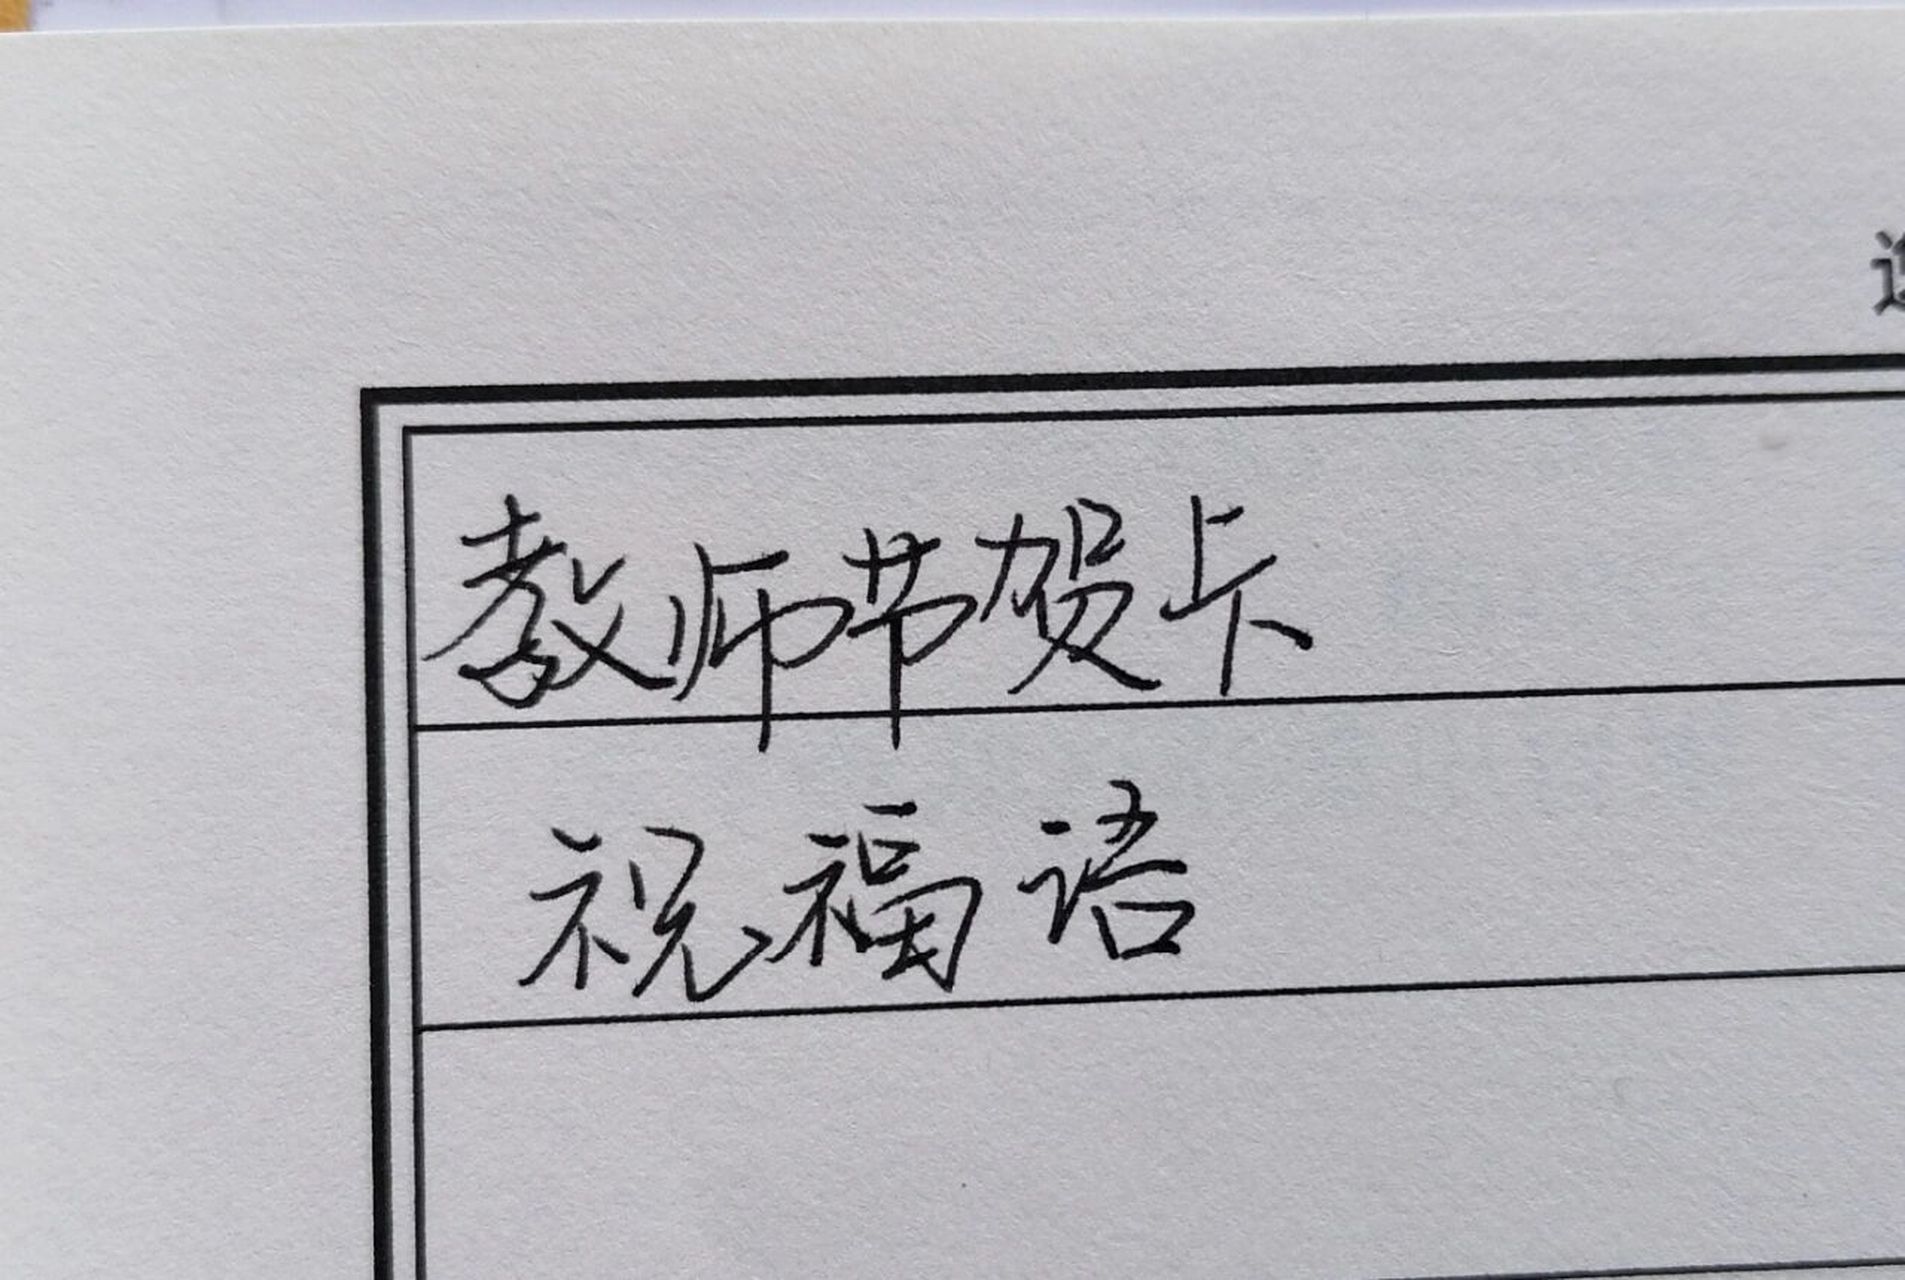 教师节贺卡
祝福语